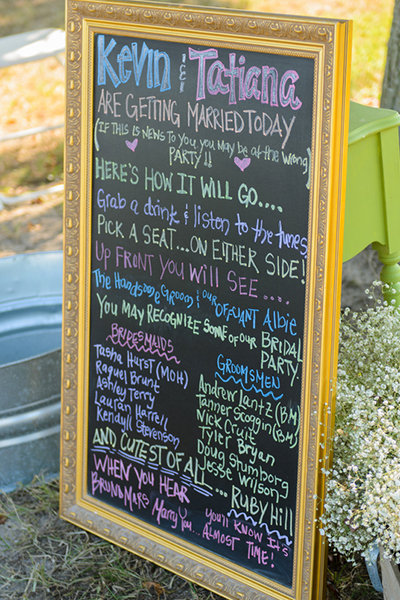 Kevin & Tatiana
ARE GETTING MARRIED TODAY
(IF THIS IS NEWS TO YOU, YOU MAY BE AT THE WRONG
PARTY!!)
HERE'S HOW IT WILL GO....
Grab a drink & listen to the tunes
PICK A SEAT...ON EITHER SIDE!
UP FRONT YOU WILL SEE....
The Handsome Groom & our OFFICIANT Albie
YOU MAY RECOGNIZE SOME OF OUR BRIDAL
PARTY.
BRIDESMAIDS
Tasha Hurst (MOH)
Raquel Brunt
Ashley Terry
Lauran Harrell
Kendyll Stevenson
GROOMSMEN
Andrew Lantz (BM)
Tanner Scoggin (BM)
Nick Cruit
Tyler Bryan
Doug Stumborg
Jesse Wilson
AND CUTEST OF ALL... RUBY HILL
WHEN YOU HEAR
BRUNO MARS Marry You... you'll KNOW IT'S
ALMOST TIME!